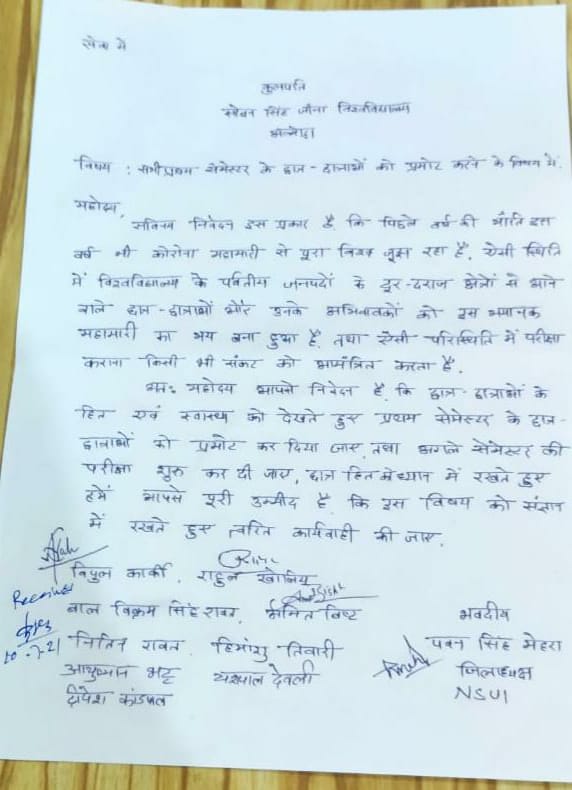 सेवा में
कुलपति
सोबन सिंह जीना विश्वविद्यालय
अल्मोड़ा
विषय : सभी प्रथम सेमेस्टर के छात्र - छात्राओं को प्रमोट करने के विषय में.
महोदय,
सविनय निवेदन इस प्रकार है, कि पिछले वर्ष की भाँति इस
वर्ष भी कोरोना महामारी से पूरा विश्व जूझ रहा है, ऐसी स्थिति
में विश्वविद्यालय के पर्वतीय जनपदों के दूर-दराज क्षेत्रों से आने
वाले छात्र - छात्राओं और उनके अभिवावकों को इस भयानक
महामारी का भय बना हुआ है, तथा ऐसी परिस्थिति में परीक्षा
कराना किसी भी संकट को आमंत्रित करता है.
अतः महोदय आपसे निवेदन है, कि छात्र - छात्राओं के
हित एवं स्वास्थ्य को देखते हुए प्रथम सेमेस्टर के छात्र-
छात्राओं को प्रमोट कर दिया जाए, तथा अगले सेमेस्टर की
परीक्षा शुरू कर दी जाए, छात्र हित में ध्यान में रखते हुए
हमें आपसे पूरी उम्मीद है, कि इस विषय को संज्ञान
में रखते हुए त्वरित कार्यवाही की जाए.
विपुल कार्की, राहुल खोलिया
बाल विक्रम सिंह रावत, अमित बिष्ट
Received
नितिन रावत, हिमांशु तिवारी
आयुष्मान भट्ट यशपाल देवली
दीपेश कांडपाल
भवदीय
पवन सिंह मेहरा
जिलाध्यक्ष
NSUI